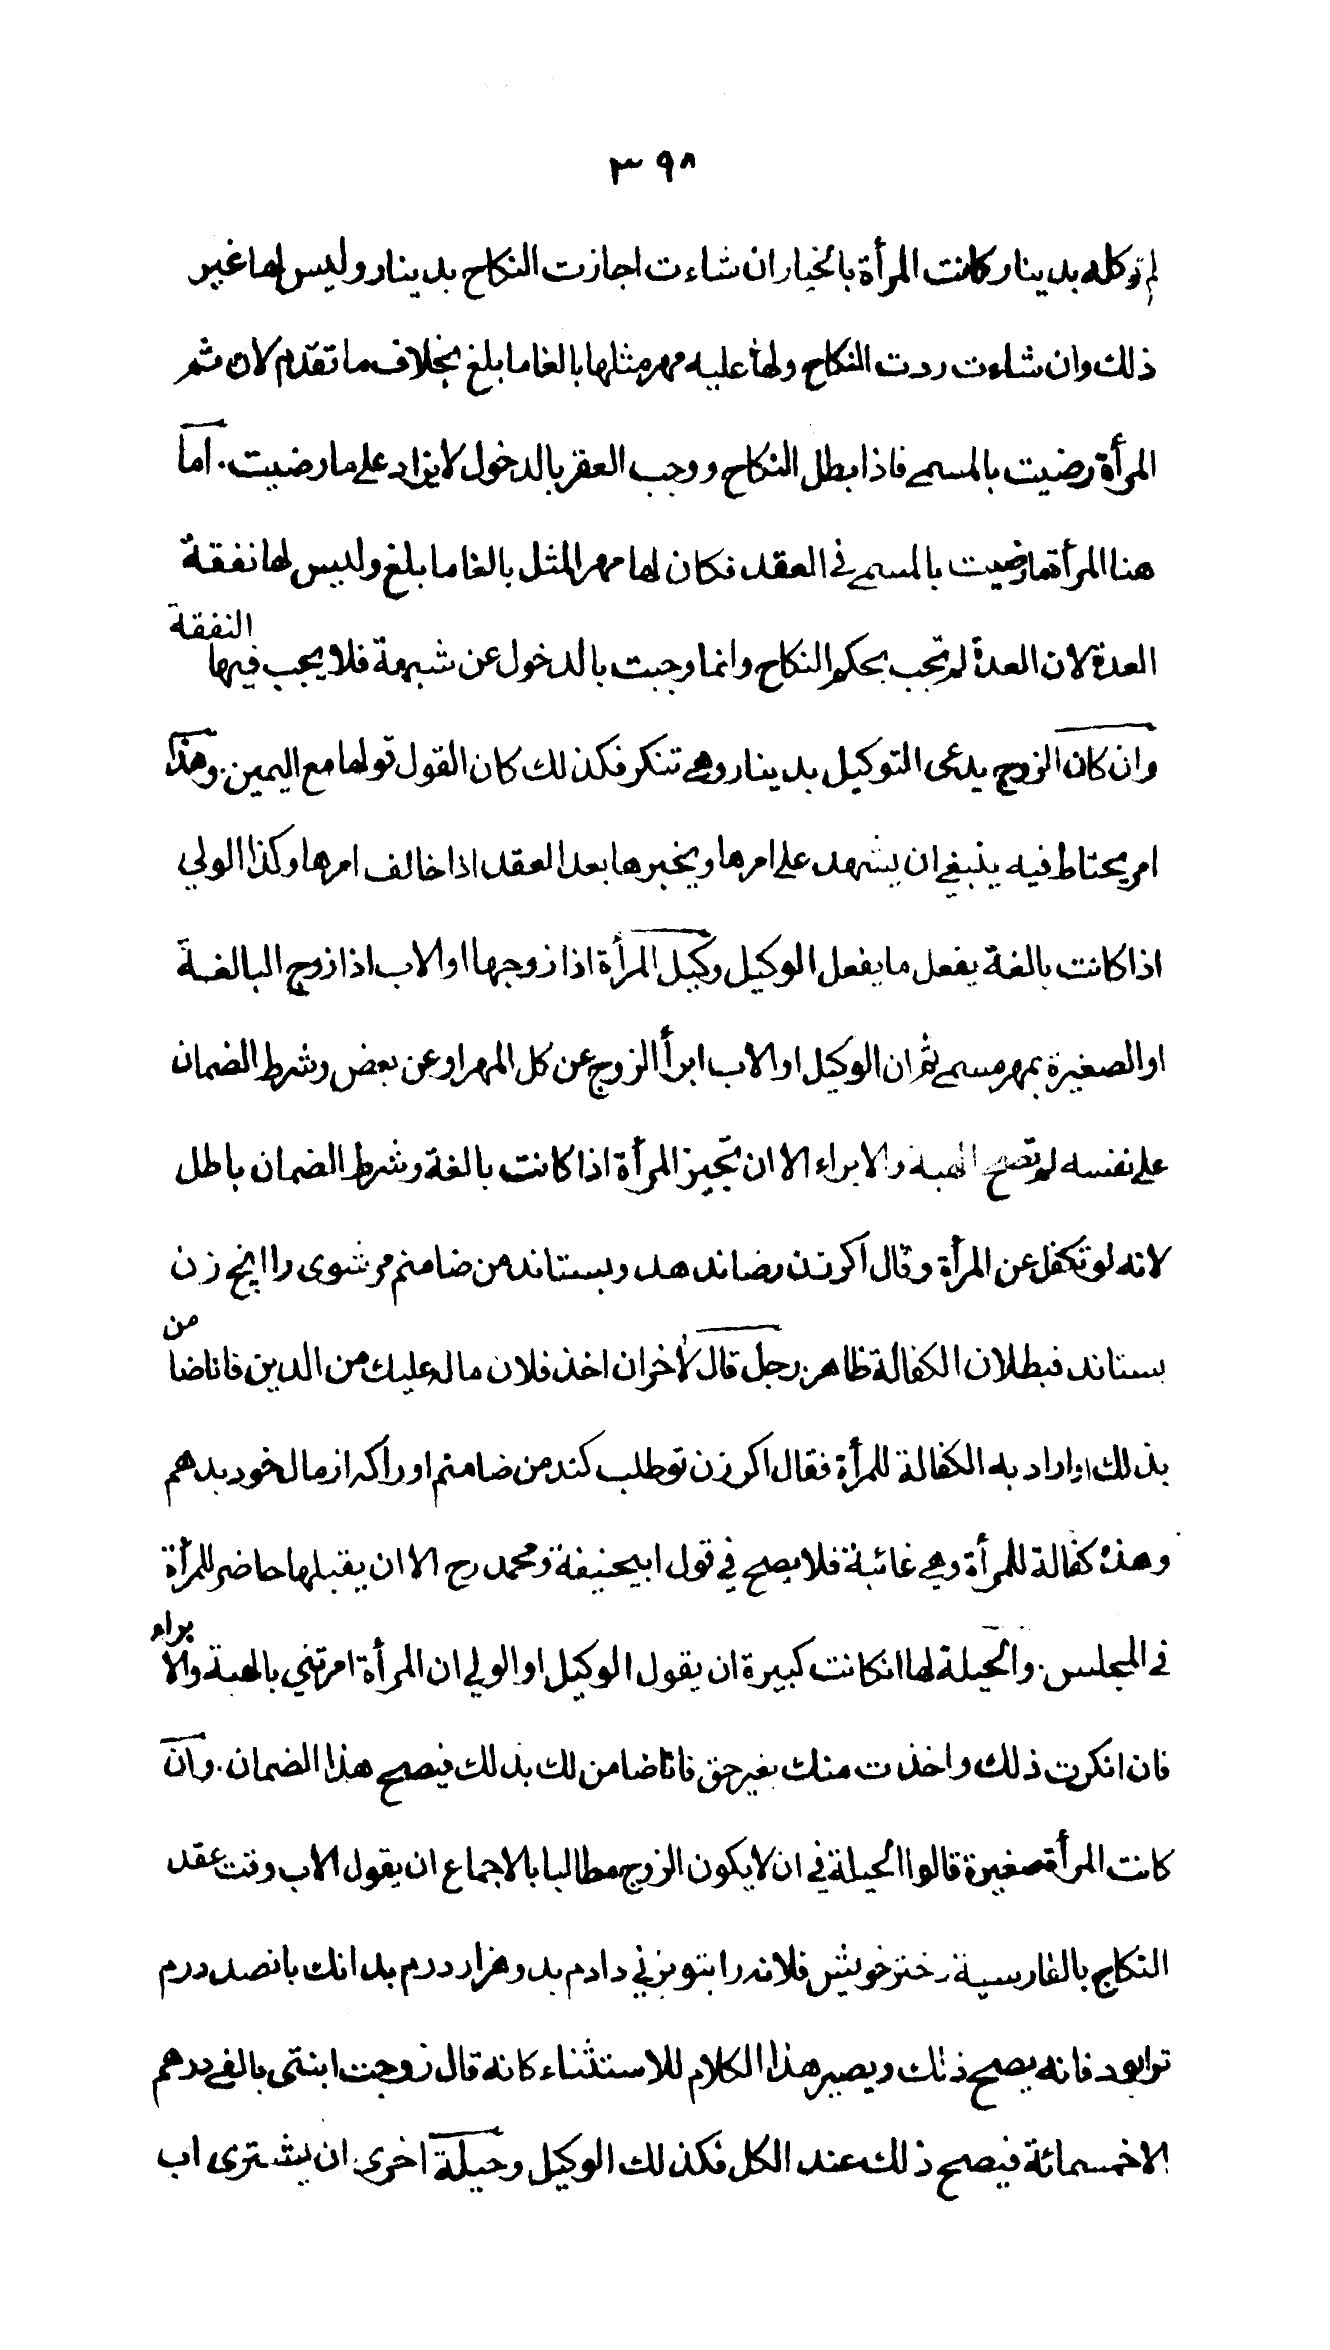 ٣٩٨
لم توكله بدينار كانت المرأة بالخيار ان شاءت اجازت النكاح بدينار وليس لها غير
ذلك وان شاءت ردت النكاح ولها عليه مهر مثلها بالغا ما بلغ بخلاف ما تقدم لان ثمر
المرأة رضيت بالمسمى فاذا بطل النكاح ووجب العقر بالدخول لا يزاد على ما رضيت. اما
هنا المرأة ما رضيت بالمسمى في العقد فكان لها مهر المثل بالغا ما بلغ وليس لها نفقة
العدة لان العدة لم تجب بحكم النكاح وانما وجبت بالدخول عن شبهة فلا يجب فيها النفقة
وان كان الزوج يدعى التوكيل بدينار وهي تنكر فكذلك كان القول قولها مع اليمين. وهذا
امر يحتاط فيه ينبغي ان يشهد على امرها ويخبرها بعد العقد اذا خالف امرها وكذا الولي
اذا كانت بالغة يفعل ما يفعل الوكيل وكيل المرأة اذا زوجها او الاب اذا زوج البالغة
او الصغيرة بمهر مسمى ثم ان الوكيل او الاب ابرأ الزوج عن كل المهر او عن بعض وشرط الضمان
على نفسه لم تصح الهبة والابراء الا ان تجيز المرأة اذا كانت بالغة وشرط الضمان باطل
لانه لو تكفل عن المرأة وقال اكر زن رضا ندهد وبستاند من ضامنم مر شوى را انچ زن
بستاند فبطلان الكفالة ظاهر. رجل قال لأخر ان اخذ فلان ماله عليك من الدين فانا ضامن
بذلك او اراد به الكفالة للمرأة فقال اكر زن تو طلب كند من ضامنم او را كه از مال خود بدهم
وهذه كفالة للمرأة وهي غائبة فلا يصح في قول ابيحنيفة ومحمد رح الا ان يقبلها حاضر للمرأة
في المجلس. والحيلة لها انكانت كبيرة ان يقول الوكيل او الولي ان المرأة امرتني بالهبة والابراء
فان انكرت ذلك واخذت منك بغير حق فانا ضامن لك بذلك فيصح هذا الضمان. وان
كانت المرأة صغيرة قالوا الحيلة في ان لا يكون الزوج مطالبا بالاجماع ان يقول الاب وقت عقد
النكاح بالفارسية دختر خويش فلانه را بتو بزني دادم بدو هزار درم بدانك بانصد درم
ترا بود فانه يصح ذلك ويصير هذا الكلام للاستثناء كانه قال زوجت ابنتى بالفى درهم
الا خمسمائة فيصح ذلك عند الكل فكذلك الوكيل وحيلة اخرى ان يشترى اب